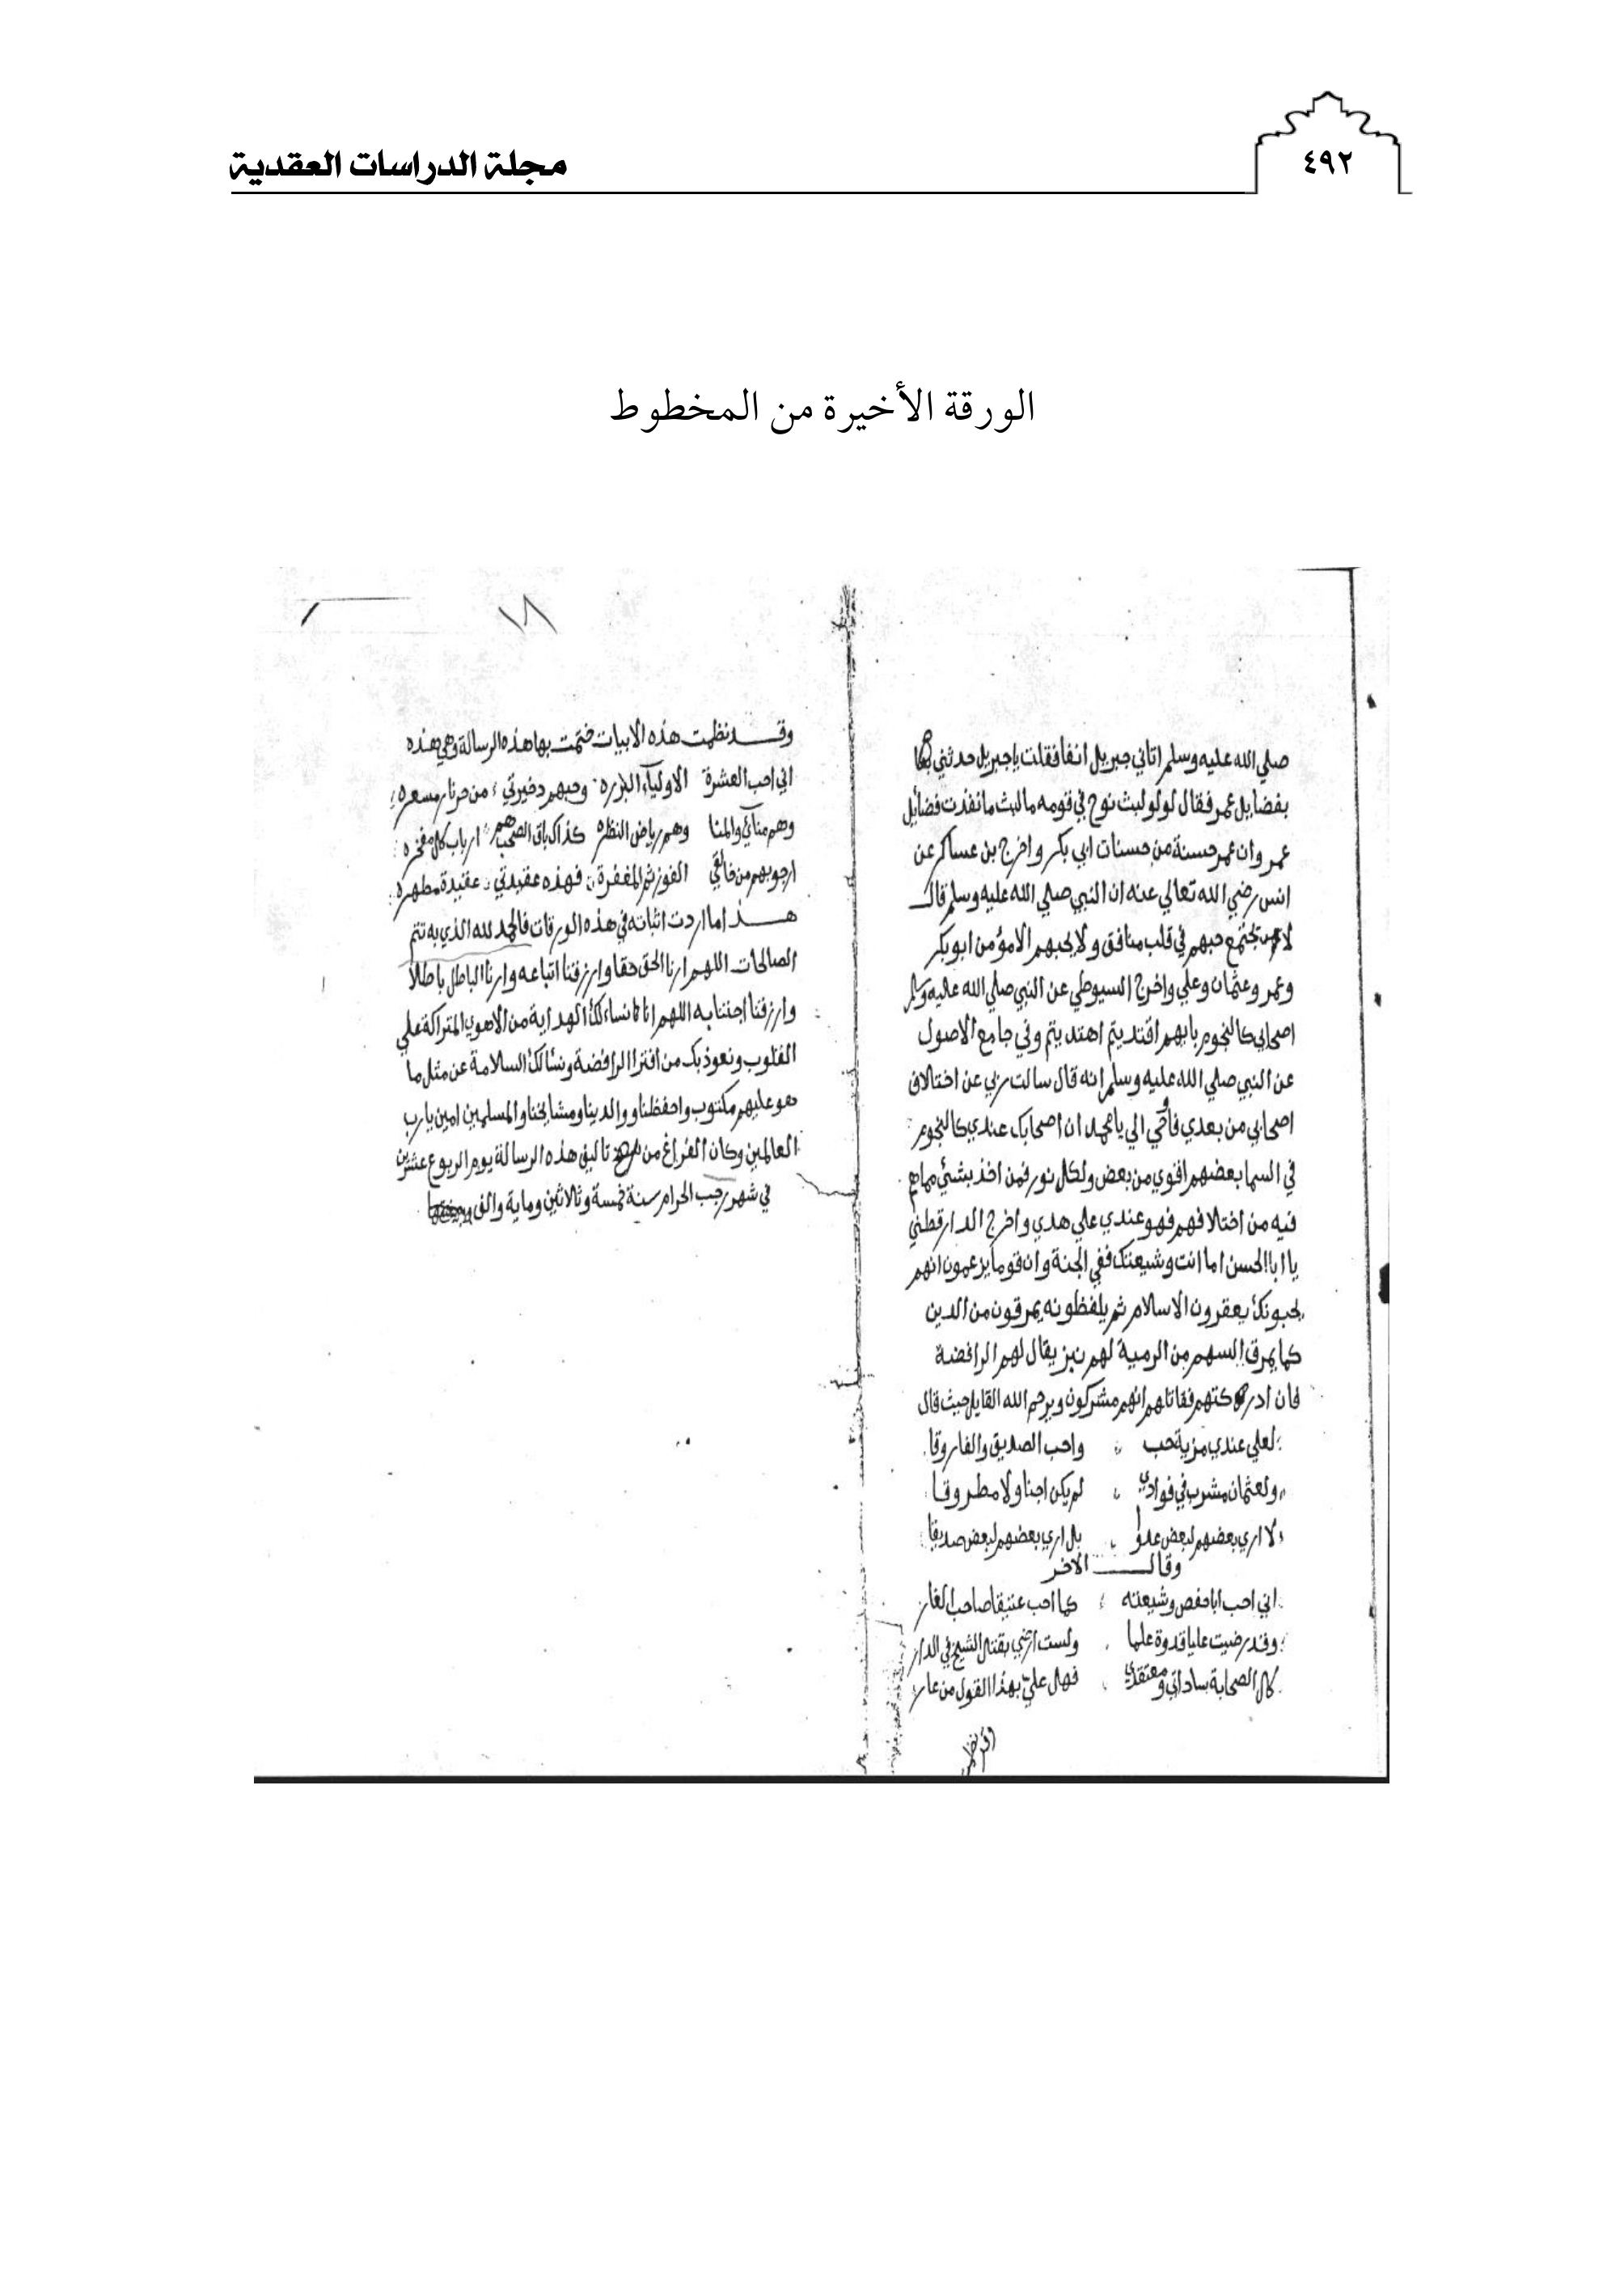 مجلة الدراسات العقدية
٤٩٢
الورقة الأخيرة من المخطوط
صلي الله عليه وسلم اتاني جبريل انفا فقلت ياجبريل حدثني
بفضايل عمر فقال لو لو لبث نوح في قومه مالبث مانفذت فضايل
عمر وان عمر حسنة من حسنات ابي بكر واخرج بن عساكر عن
انس رضي الله تعالي عنه ان النبي صلي الله عليه وسلم قال
لا يجتمع حبهم في قلب منافق ولا يحبهم الا مؤمن ابو بكر
وعمر وعثمان وعلي واخرج السيوطي عن النبي صلي الله عليه وسلم
اصحابي كالنجوم بايهم اقتديتم اهتديتم وفي جامع الاصول
عن النبي صلي الله عليه وسلم انه قال سالت ربي عن اختلاف
اصحابي من بعدي فاوحي الي يامحمد ان اصحابك عندي كالنجوم
في السما بعضهم اقوي من بعض ولكل نور فمن اخذ بشئ مماهم
فيه من اختلافهم فهو عندي علي هدي واخرج الدارقطني
يا ابا الحسن اما انت وشيعتك ففي الجنة وان قوما يزعمون انهم
يحبونك يعقرون الاسلام ثم يلفظونه يمرقون من الدين
كما يمرق السهم من الرمية لهم نبز يقال لهم الرافضة
فان ادركتهم فقاتلهم انهم مشركون ويرحم الله القايل حيث قال
لعلي عندي مزية حب واحب الصديق والفاروقا
ولعثمان مشرب في فوادي لم يكن اجنا ولا مطروقا
لا اري بعضهم لبعض عدوا بل اري بعضهم لبعض صديقا
وقال الاخر
اني احب ابا حفص وشيعته كما احب عتيقا صاحب الغار
وقد رضيت عليا قدوة علما ولست ارضي بقتل الشيخ في الدار
كل الصحابة ساداتي ومعتقدي فهل علي بهذا القول من عار
وقد نظمت
١٨
وقد نظمت هذه الابيات ختمت بها هذه الرسالة وهي هذه
اني احب العشرة الاولياء البرره وحبهم دخيرتي من حر نار مسعره
وهم منائي والمنا وهم رياض النظره كذاك باقي الصحب هم ارباب كل مفخره
ارجو بهم من خالقي الفوز ثم المغفرة فهذه عقيدتي عقيدة مطهره
هذا ما اردت اثباته في هذه الورقات فالحمد لله الذي به تتم
الصالحات اللهم ارنا الحق حقا وارزقنا اتباعه وارنا الباطل باطلا
وارزقنا اجتنابه اللهم انا نساءلك الهداية من الاهوي المتراكة علي
القلوب ونعوذ بك من افترا الرافضة ونسالك السلامة عن مثل ما
هو عليهم مكتوب واحفظنا ووالدينا ومشايخنا والمسلمين امين يارب
العالمين وكان الفراغ من تاليف هذه الرسالة يوم الربوع عشرين
في شهر رجب الحرام سنة خمسة وثلاثين وماية والف